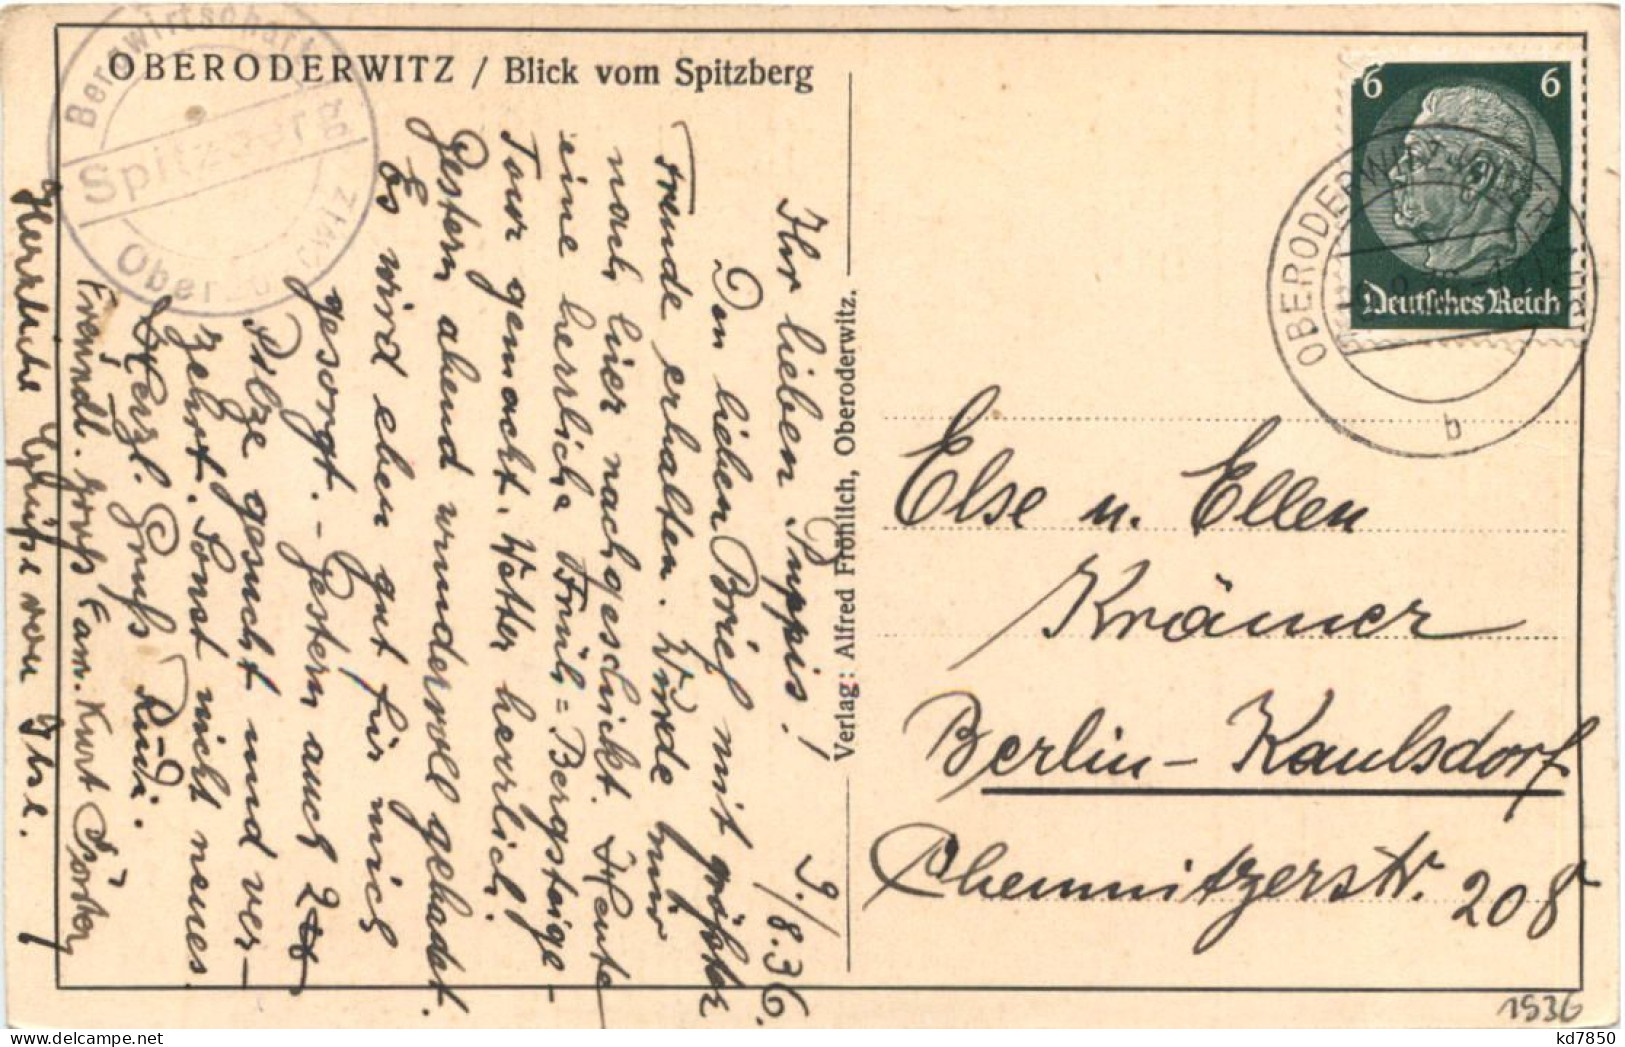 OBERODERWITZ / Blick vom Spitzberg
Bergwirtschaft
Spitzberg
Oberoderwitz
9./8.36.
Ihr lieben Puppis!
Den lieben Brief mit größter
Freude erhalten. Wurde mir
nach hier nachgeschickt. Heute
eine herrliche Früh=Bergsteige-
Tour gemacht. Wetter herrlich.
Gestern abend wundervoll gebadet.
Es wird eben gut für mich
gesorgt. - Gestern auch
Pilze gesucht und ver-
zehrt. Sonst nicht neues
Herzl. Gruß Rudi.
Freundl. Grüße Fam. Kurt
Herzliche Grüße von
Verlag: Alfred Fröhlich, Oberoderwitz.
6 6
Deutsches Reich
OBERODERWITZ
b
Else u. Ellen
Krämer
Berlin-Kaulsdorf
Chemnitzerstr. 208
1936
kd7850